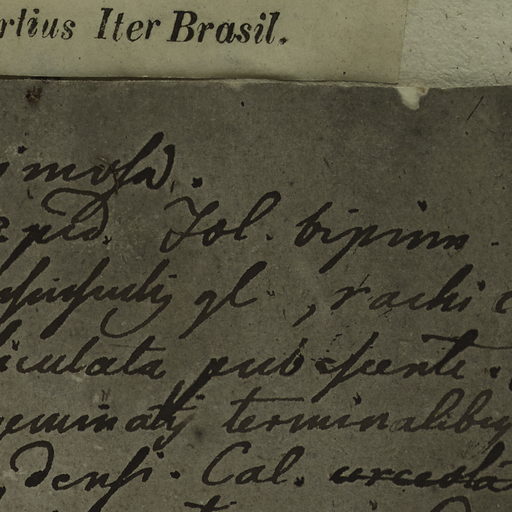 rtius Iter Brasil.
imosa.
Fol. bipinn.
gl., rachi
iculata pubescente.
geminatis terminalibus
densi. Cal. urceola